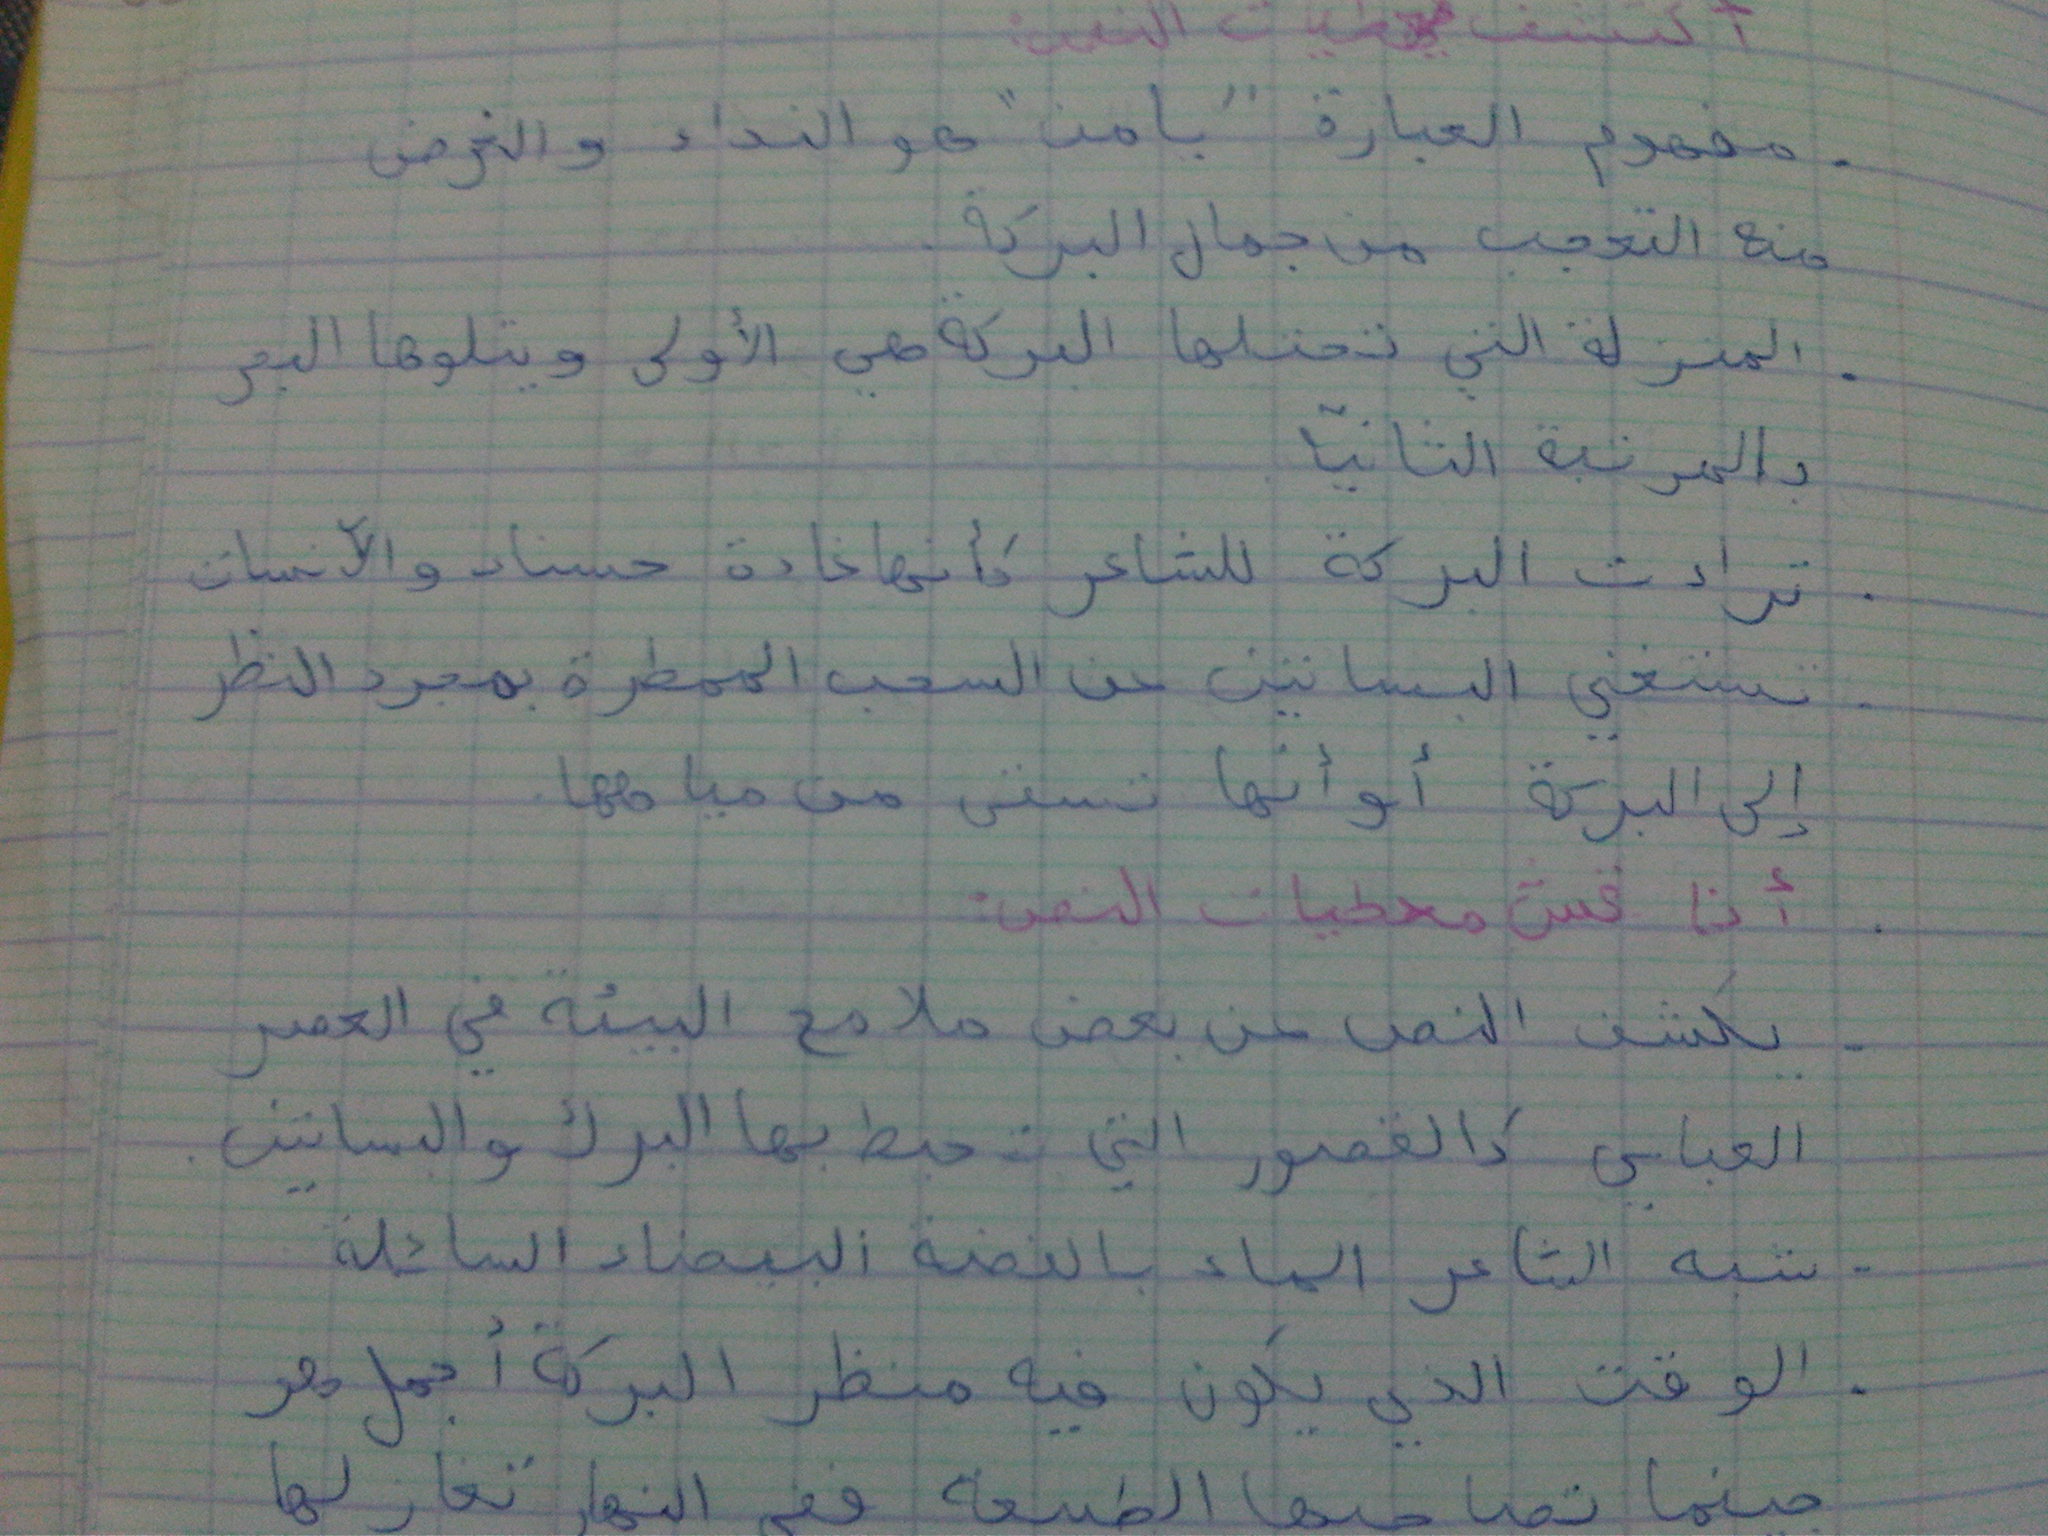 أكتشف معطيات النص:
. مفهوم العبارة "يا من" هو النداء والغرض
منه التعجب من جمال البركة.
. المنزلة التي تحتلها البركة هي الأولى ويتلوها البحر
بالمرتبة الثانيّة
. تراءت البركة للشاعر كأنها غادة حسناء والآنسات
. تستغني البساتين عن السحب الممطرة بمجرد النظر
إلى البركة أو أنها تستقي من مياهها.
. أناقش معطيات النص:
- يكشف النص عن بعض ملامح البيئة في العصر
العباسي كالقصور التي تحيط بها البرك والبساتين.
- شبه الشاعر الماء بالفضة البيضاء السائلة
. الوقت الذي يكون فيه منظر البركة أجمل هو
حينما تصاحبها الطبيعة ففي النهار تغازلها